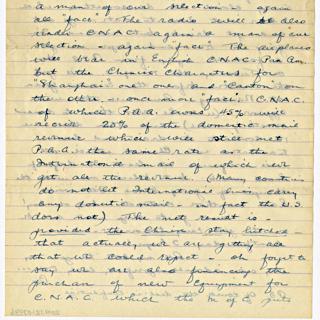 a man of our selection - again
all 'face'. The radio will be also
radio C.N.A.C. again a man of our
selection - again 'face'. The airplanes
will bear in English C.N.A.C. Pan Am.
but the Chinese Characters for
"Shanghai" on one and "Canton" on
the other - once more 'face'. C.N.A.C.
of which P.A.A. owns 45% will
accrue 25% of the domestic mail
revenue which will still net
P.A.A. the same rate as the
International mail of which we
get all the revenue. (Many countries
do not let International lines carry
any domestic mail - in fact the U.S.
does not) The net result is -
provided the Chinese stay hitched -
that actually we are getting all
that we could expect - oh forgot to
say we are also financing the
purchase of new equipment for
C.N.A.C. which the M of C gets